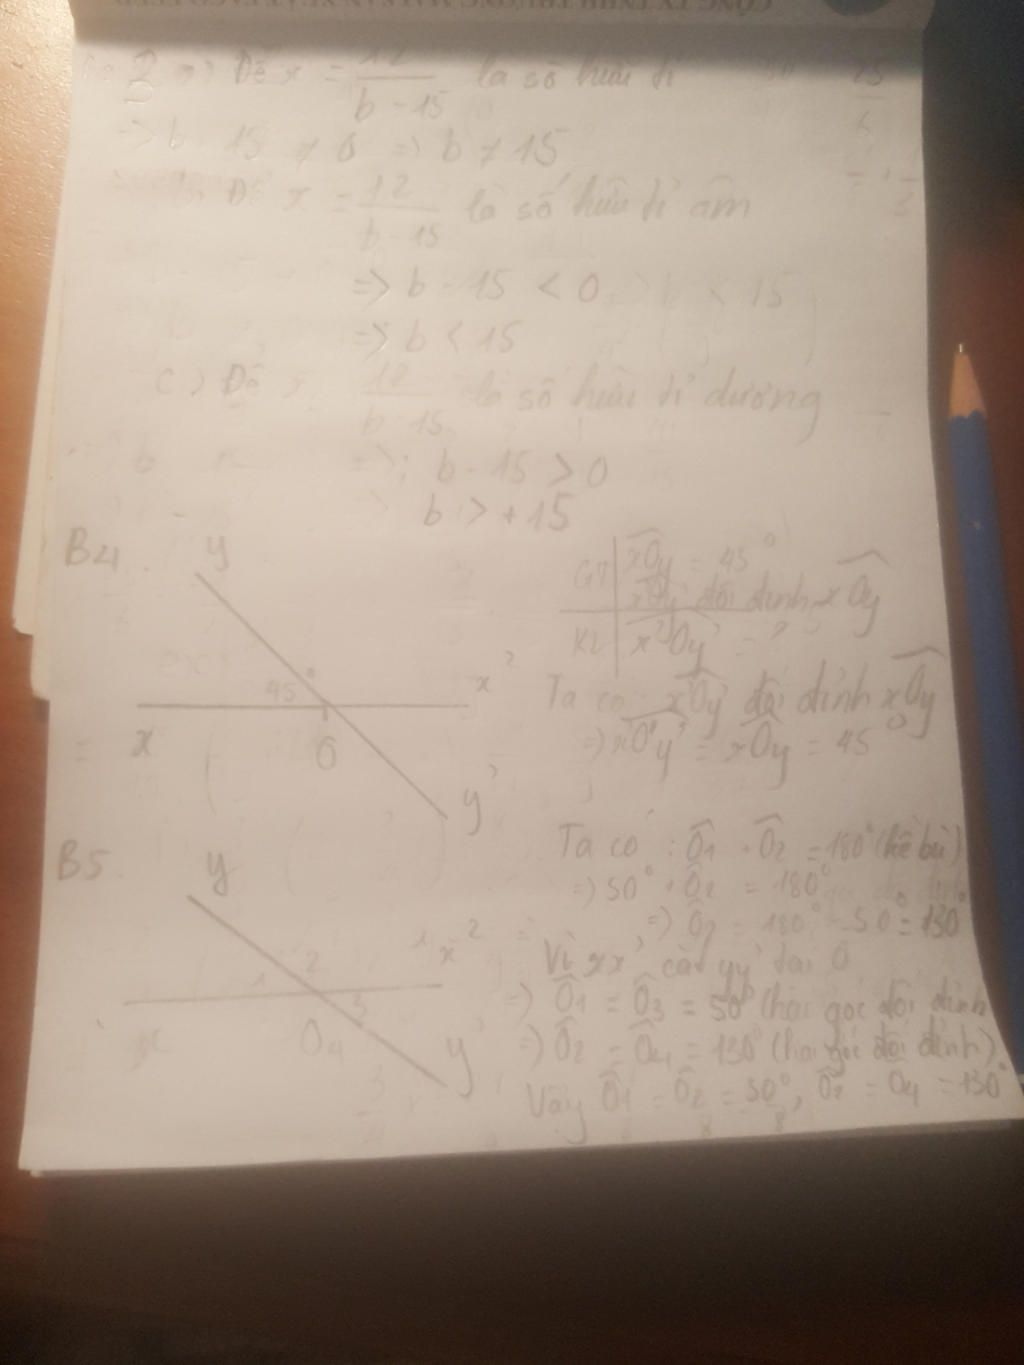 2 a) Để x = 12/b-15 là số hữu tỉ
=> b - 15 ≠ 0 => b ≠ 15
b) Để x = 12/b-15 là số hữu tỉ âm
=> b - 15 < 0 => b < 15
=> b < 15
c) Để x 12/b-15 là số hữu tỉ dương
=> b - 15 > 0
b > +15
B4
y
45°
x
O
x'
y'
GT xOy = 45°
x'Oy' đối đỉnh xOy
KL x'Oy' = ?
Ta có: x'Oy' đối đỉnh xOy
=> x'Oy' = xOy = 45°
B5
y
1
2
3
x
O4
x'
y'
Ta có: Ô1 + Ô2 = 180° (kề bù)
=> 50° + Ô2 = 180°
=> Ô2 = 180° - 50° = 130°
Vì xx' cắt yy' tại O
=> Ô1 = Ô3 = 50° (hai góc đối đỉnh
=> Ô2 = Ô4 = 130° (hai góc đối đỉnh)
Vậy Ô1 = Ô2 = 50°, Ô2 = Ô4 = 130°